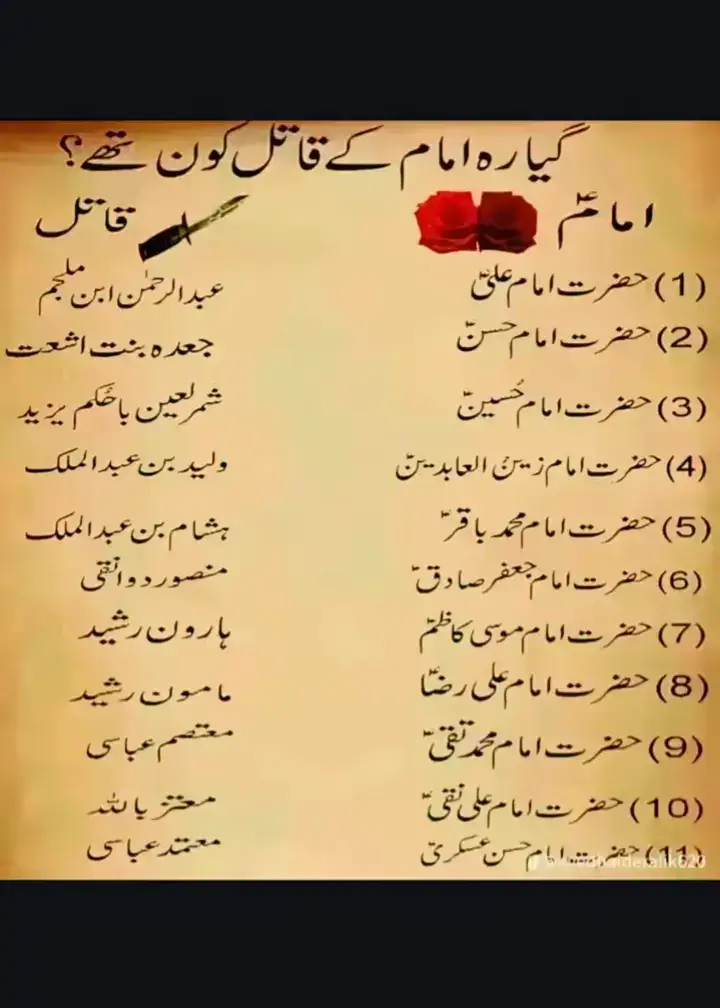 گیارہ امام کے قاتل کون تھے؟
امامؑ قاتل
(1) حضرت امام علیؑ عبدالرحمٰن ابن ملجم
(2) حضرت امام حسنؑ جعدہ بنت اشعت
(3) حضرت امام حُسینؑ شمر لعین باحُکم یزید
(4) حضرت امام زین العابدینؑ ولید بن عبدالملک
(5) حضرت امام محمد باقرؑ ہشام بن عبدالملک
(6) حضرت امام جعفر صادقؑ منصور دوانقی
(7) حضرت امام موسی کاظمؑ ہارون رشید
(8) حضرت امام علی رضاؑ مامون رشید
(9) حضرت امام محمد تقیؑ معتصم عباسی
(10) حضرت امام علی نقیؑ معتز باللہ
(11) حضرت امام حسن عسکریؑ معتمد عباسی